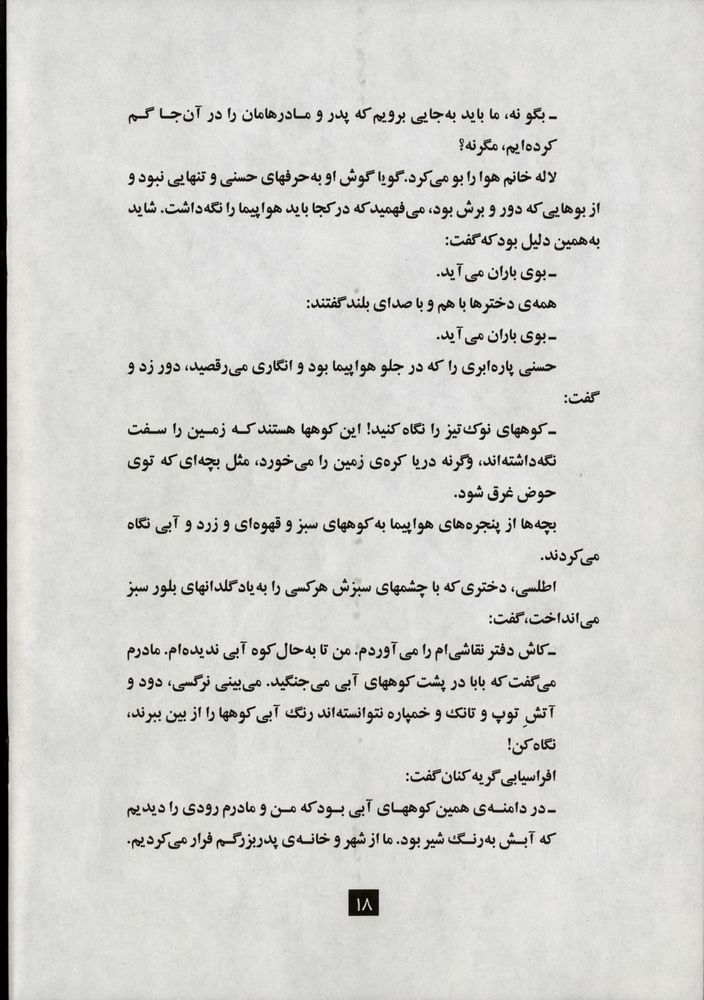 ـ بگو نه، ما باید به‌جایی برویم که پدر و مـادرهامان را در آن‌جـا گـم
کرده‌ایم، مگرنه؟
لاله خانم هوا را بو می‌کرد. گویا گوش او به‌حرفهای حسنی و تنهایی نبود و
از بوهایی که دور و برش بود، می‌فهمید که در کجا باید هواپیما را نگه‌داشت. شاید
به‌همین دلیل بود که گفت:
ـ بوی باران می‌آید.
همه‌ی دخترها با هم و با صدای بلند گفتند:
ـ بوی باران می‌آید.
حسنی پاره‌ابری را که در جلو هواپیما بود و انگاری می‌رقصید، دور زد و
گفت:
ـ کوههای نوک‌تیز را نگاه کنید! این کوهها هستند کـه زمـین را سـفت
نگه‌داشته‌اند، وگرنه دریا کره‌ی زمین را می‌خورد، مثل بچه‌ای که توی
حوض غرق شود.
بچه‌ها از پنجره‌های هواپیما به کوههای سبز و قهوه‌ای و زرد و آبی نگاه
می‌کردند.
اطلسی، دختری که با چشمهای سبزش هرکسی را به‌یاد گلدانهای بلور سبز
می‌انداخت، گفت:
ـ کاش دفتر نقاشی‌ام را می‌آوردم. من تا به‌حال کوه آبی ندیده‌ام. مادرم
می‌گفت که بابا در پشت کوههای آبی می‌جنگید. می‌بینی نرگسی، دود و
آتشِ توپ و تانک و خمپاره نتوانسته‌اند رنگ آبی کوهها را از بین ببرند،
نگاه کن!
افراسیابی گریه کنان گفت:
ـ در دامنـه‌ی همین کوههـای آبی بـود که مـن و مادرم رودی را دیدیم
که آبـش به‌رنـگ شیر بود. ما از شهر و خانـه‌ی پدربزرگـم فرار می‌کردیم.
۱۸